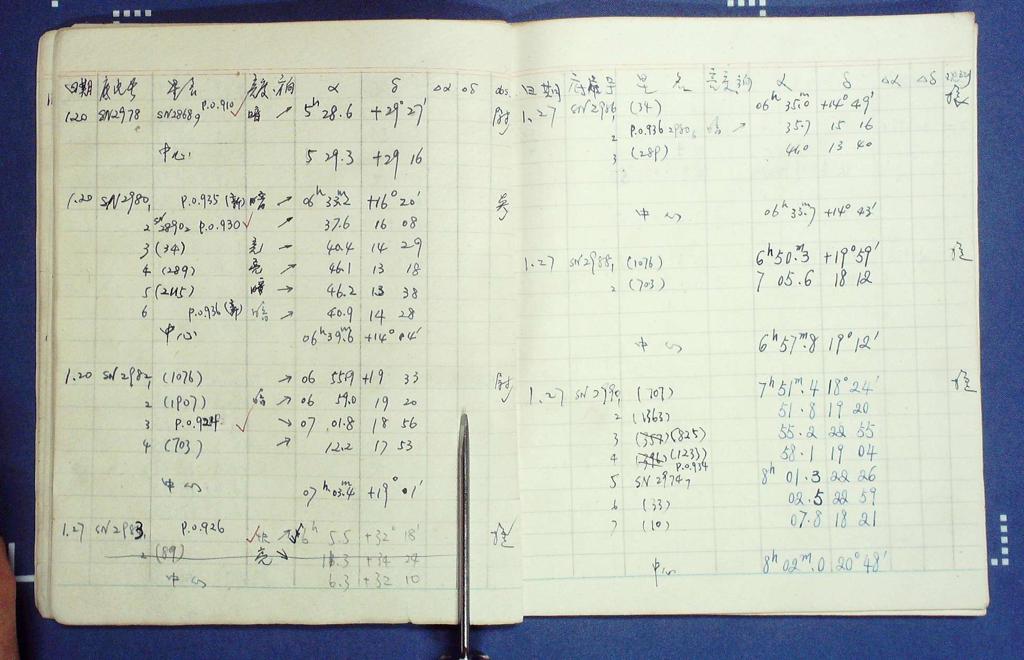 日期 底片号 星名 亮度 方向 α δ Δα Δδ obs.
1.20 SN2978 SN2868₉ P.O.910 暗 ↗ 5ʰ 28.6 +29° 27′
中心 5 29.3 +29 16
1.20 SN2980₁ P.O.935 (新) 暗 ↗ 06ʰ 33.2ᵐ +16° 20′
2 SN2890₂ P.O.930 ↗ 37.6 16 08
3 (34) 亮 ↗ 40.4 14 29
4 (289) 亮 ↗ 46.1 13 18
5 (2115) 暗 ↗ 46.2 13 38
6 P.O.936 (新) 暗 ↗ 40.9 14 28
中心 06ʰ 39.6ᵐ +14° 04′
1.20 SN2982₁ (1076) → 06 55.9 +19 33
2 (1907) 暗 ↘ 06 59.0 19 20
3 P.O.924 ↘ 07 01.8 18 56
4 (703) ↗ 12.2 17 53
中心 07ʰ 03.4ᵐ +19° 01′
1.27 SN2983 P.O.926 ↗ 6ʰ 5.5 +32° 18′
2 (89) 亮 ↘ 11.3 +34 24
中心 6.3 +32 10
日期 底片号 星名 亮度 方向 α δ Δα Δδ
1.27 SN2986₁ (34) 06ʰ 35.0ᵐ +14° 49′
2 P.O.936 2980₆ 暗 ↗ 35.7 15 16
3 (289) 46.0 13 40
中心 06ʰ 33.7ᵐ +14° 43′
1.27 SN2988₁ (1076) 6ʰ 50.3ᵐ +19° 59′
2 (703) 7 05.6 18 12
中心 6ʰ 57.8ᵐ 19° 12′
1.27 SN2990₁ (703) 7ʰ 51.4ᵐ 18° 24′
2 (1363) 51.8 19 20
3 (354) (825) 55.2 22 55
4 (1233) 58.1 19 04
5 SN2974₇ P.O.934 8ʰ 01.3 22 26
6 (33) 02.5 22 59
7 (10) 07.8 18 21
中心 8ʰ 02.0ᵐ 20° 48′